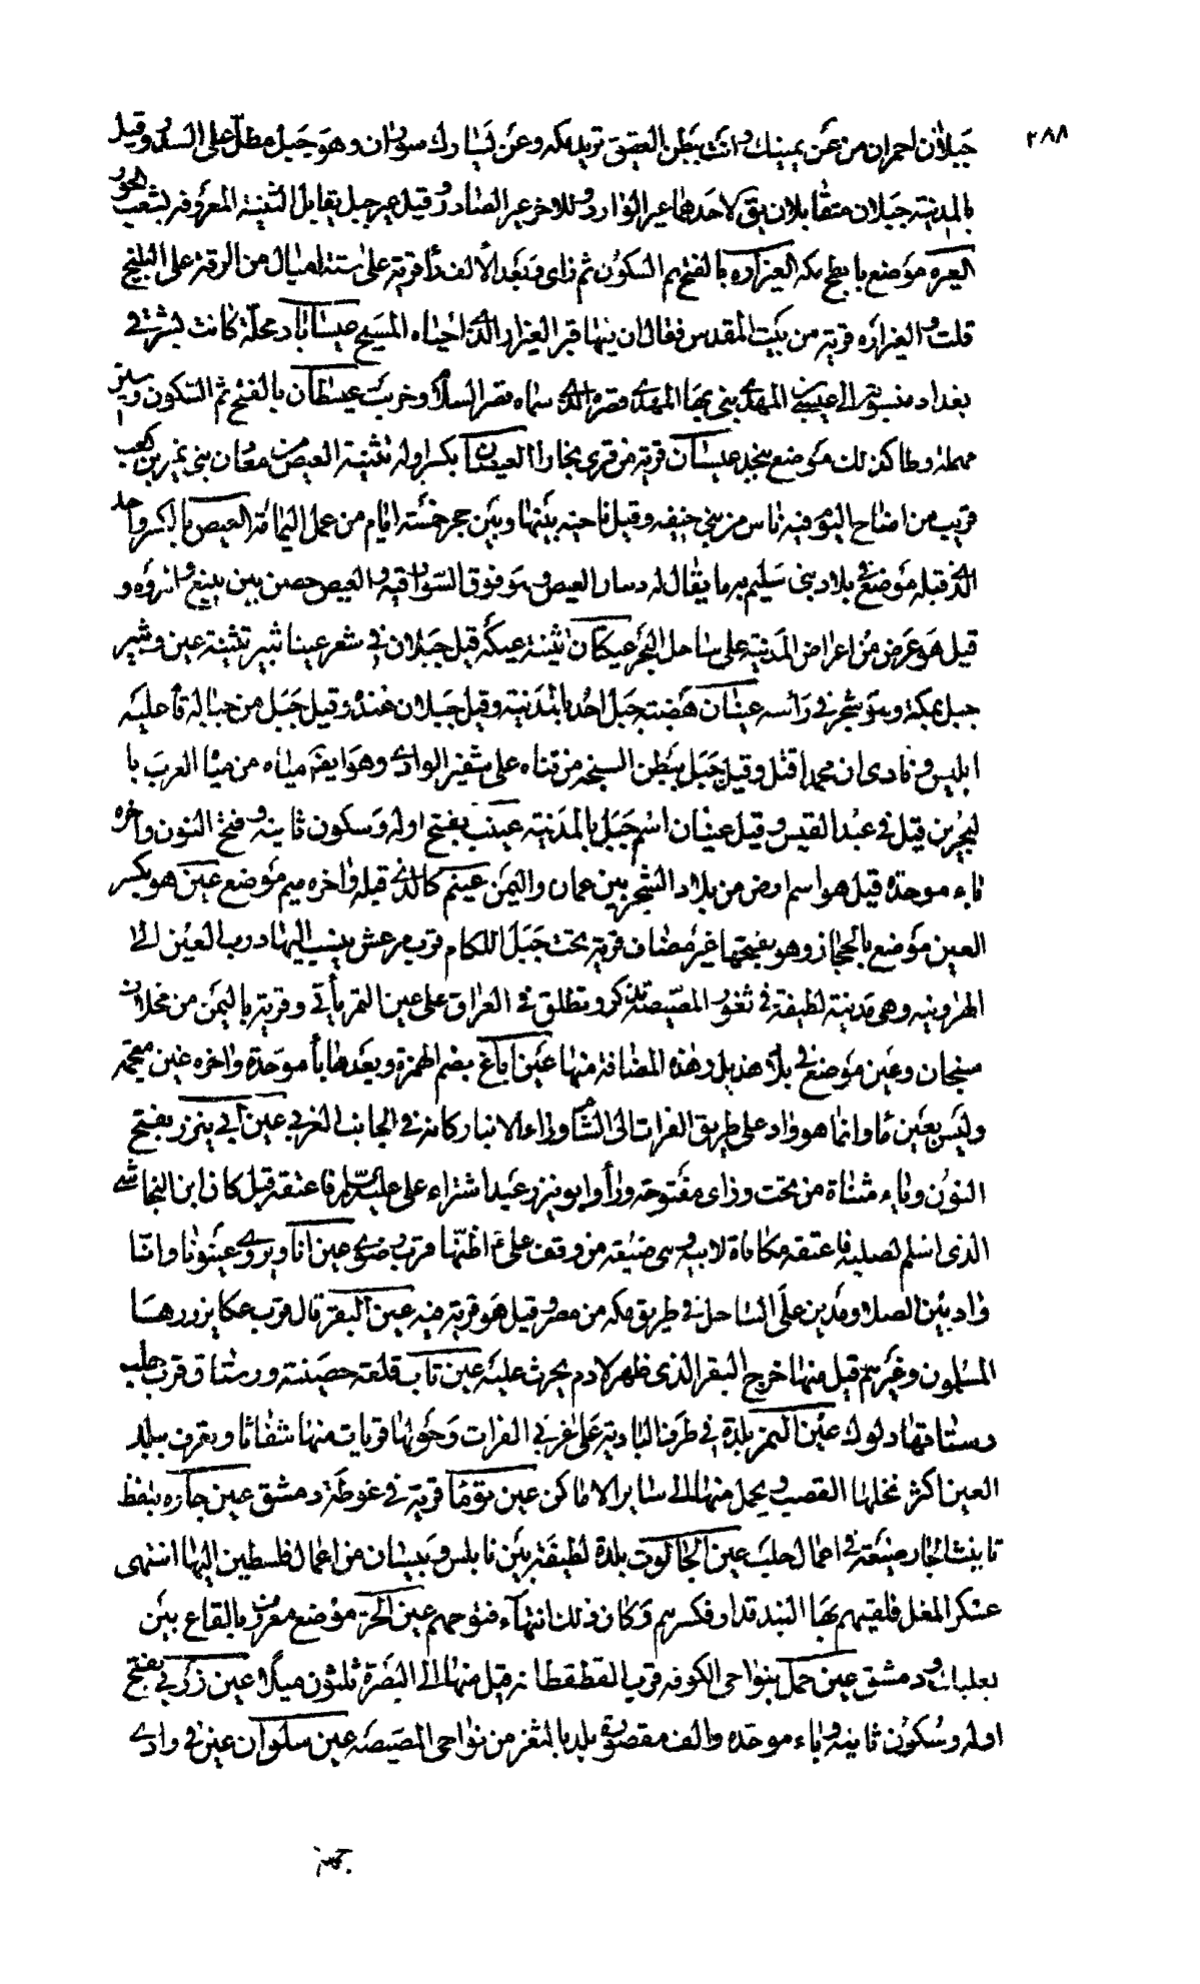 ٢٨٨
جبلان احمران من عن يمينك وانت ببطن العقيق تريد مكه وعن يسارك سوران وهو جبل مطل على السد وقيل
بالمدينة جبلان متقابلان يق لاحدهما عير الوارد وللاخر عير الصادر وقيل عير جبل يقابل الثنية المعروفه بشعب الخوز
العيره موضع بابطح مكه العيزاره بالفتح ثم السكون ثم زاى وبعد الالف را قرية على ستة اميال من الرقة على البليخ
قلت والعيزاره قرية من بيت المقدس فقال ان بها قبر العيزار الذى احياه المسيح عيساباد محلة كانت بشرقى
بغداد منسوبة الى عيسى بن المهدى بنى بها المهدى قصره الذى سماه قصر السلام وخربت عيسطان بالفتح ثم السكون وسين
مهملة وطا كذلك موضع بنجد عيشان قرية من قرى بخارا العيصان بكسر اوله تثنية العيص من معادن بنى نمير بن كعب
قريب من اضاح البوفيه ناس من بنى حنيفه وقيل ناحية بينها وبين حجر خمسة ايام من عمل اليمامة العيص بالكسر واحد
الذى قبله موضع فى بلاد بنى سليم به ما يقال له دسار العيص وهو فوق السوارقيه والعيص حصن بين ينبع والمروه و
قيل هو عرض من اعراض المدينة على ساحل البحر عيكان تثنية عيكه قيل جبلان فى شعر عينا ثبير تثنية عين وثبير
جبل بمكة وهو شجر فى راسه عينان هضبة جبل احد بالمدينة وقيل جبلان عنده وقيل جبل من جباله قام عليه
ابليس ونادى ان محمدا قتل وقيل جبل ببطن السبخه من قناه على شفير الوادى وهو ايضا مياه من مياه العرب با
لبحرين قيل فى عبد القيس وقيل عينان اسم جبل بالمدينة عينب بفتح اوله وسكون ثانيه وفتح النون واخره
باء موحده قيل هو اسم ارض من بلاد الشحر بين عمان واليمن عينم كالذى قبله واخره ميم موضع عين هو بكسر
العين موضع بالحجاز وهو بفتحها غير مضاف قرية تحت جبل اللكام قرب مرعش ينسب اليها درب العين الى
الهارونيه وهى مدينة لطيفة فى ثغور المصيصة تذكر وتطلق فى العراق على عين التمر يأتى وقرية باليمن من مخلاف
سنجان وعين موضع فى بلاد هذيل وهذه المضافة منها عين اباغ بضم الهمزة وبعدها باء موحدة واخره غين معجمة
وليس بعين ما وانما هو واد على طريق الفرات الى الشام وراء الانبار كانه فى الجانب الغربى عين ابى نيزر بفتح
النون وياء مثناة من تحت وزاى مفتوحة ورأ وابو نيزر عبد اشتراه على عليه السلام فاعتقه قيل كان ابن النجاشى
الذى اسلم لصلبه فاعتقه مكافاة لابيه وهى ضيعة من وقف على ع اظنها قرب رضوى عين انا ويروى عينونا وانها
واد بين الصلا ومدين على الساحل فى طريق مكه من مصر وقيل هو قرية فيه عين البقر قال قرب عكا يزورها
المسلمون وغيرهم قيل منها خرج البقر الذى ظهر لادم يحرث عليه عين تاب قلعة حصينة ورستاق قرب حلب
رستاقها دلوك عين التمر بلدة فى طرف البادية على غربى الفرات وحولها قريات منها شفاثا وتعرف ببلد
العين اكثر نخلها القصب ويحمل منها الى سائر الاماكن عين توما قرية فى غوطة دمشق عين جاره بلفظ
تانيث الجار ضيعة فى اعمال حلب عين الجالوت بلدة لطيفة بين نابلس وبيسان من اعمال فلسطين اليها انتهى
عسكر المغل فلقيهم بها البندقدار فكسرهم وكان ذلك انتهاء فتوحهم عين الجر موضع معروف بالبقاع بين
بعلبك ودمشق عين جمل بنواحى الكوفه قرب القطقطانه قيل منها الى البصرة ثلثون ميلا عين زربى بفتح
اوله وسكون ثانيه وباء موحده والف مقصوره بلد بالثغر من نواحى المصيصه عين سلوان عين فى وادى